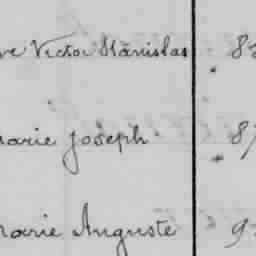 ve Victor Stanislas 8
marie Joseph 87
marie Auguste 9